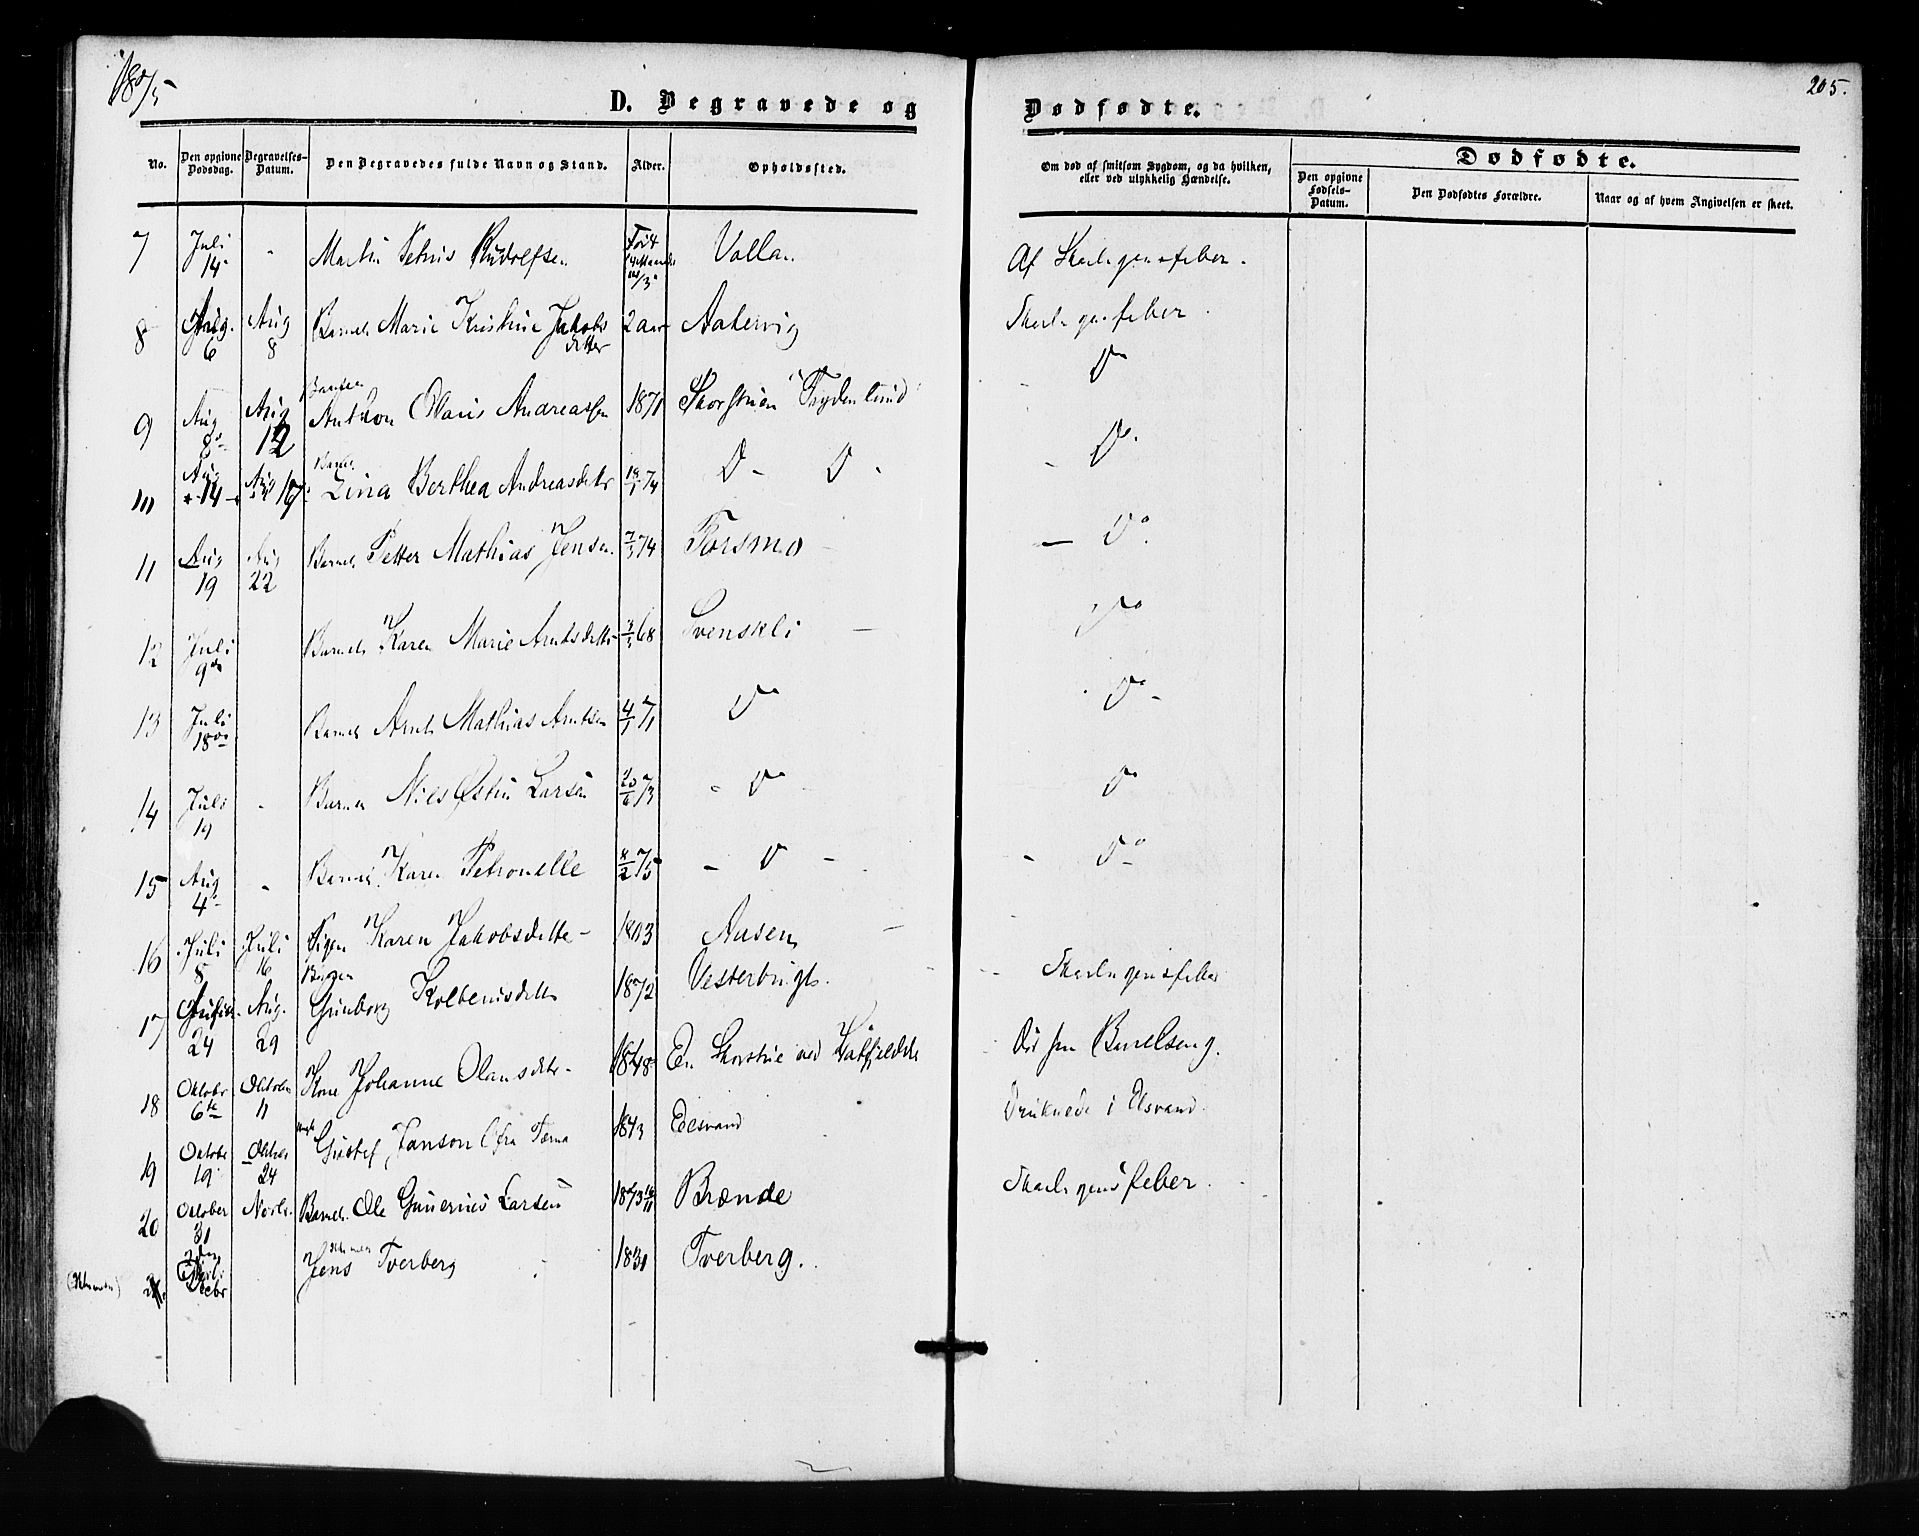 1875
205.
D. Begravede og
Dødfødte.
No.
Den opgivne Dødsdag.
Begravelses-Datum.
Den Begravedes fulde Navn og Stand.
Alder.
Opholdssted.
Om død af smitsom Sygdom, og da hvilken, eller ved ulykkelig Hændelse.
Dødfødte.
Den opgivne Fødsels-Datum.
Den Dødfødtes Forældre.
Naar og af hvem Angivelsen er skeet.
7 Juli 14 - Martin Petrus Rudolfsen Vollan Af Skarlagensfeber.
8 Aug. 6 Aug 8 Barnet Marie Kristine Jakobsdatter 2 aar Aakervig Skarlagensfeber.
9 Aug 8 Aug 12 Anthon Olaus Andreassen 1871 Skorstuen "Frydenlund" - Do
10 Aug 14 Aug 17 Barnet Lina Berthea Andreasdtr 18/1 74 D - D - - Do.
11 Aug 19 Aug 22 Barnet Petter Mathias Jensen 7/3 74 Forsmo - Do.
12 Juli 9de Barnet Karen Marie Arntsdatter 68 Svenskli - Do
13 Juli 18de Barnet Arnt Mathias Arntsen 4/1 71 Do Do -
14 Juli 19 - Barnet Nils Østin Larsen 20/6 73 - Do Do
15 Aug 4 - Barnet Karen Petronelle 8/2 75 - D - - Do
16 Juli 8 Juli 16 Pigen Karen Jakobsdatter - 1803 Ausen -
17 24 Aug. 29 Gunborg 1872 Vesterbugt. - Skarlagensfeber
18 Oktobr 6te Oktober 11 Kone Johanne Olausdtr - 1848 En Skorstue ved Hatfjelddal Død paa Barselseng.
19 Oktobe 19 24 Gustaf Janson fra Tærna 1843 Elsvand Druknede i Elsvand.
20 October 31 Novbr. Barnet Ole Larsen 1873 16/11 Brænde Skarlagensfeber.
21. Decbr Jens Tverberg 1831 Tverberg.